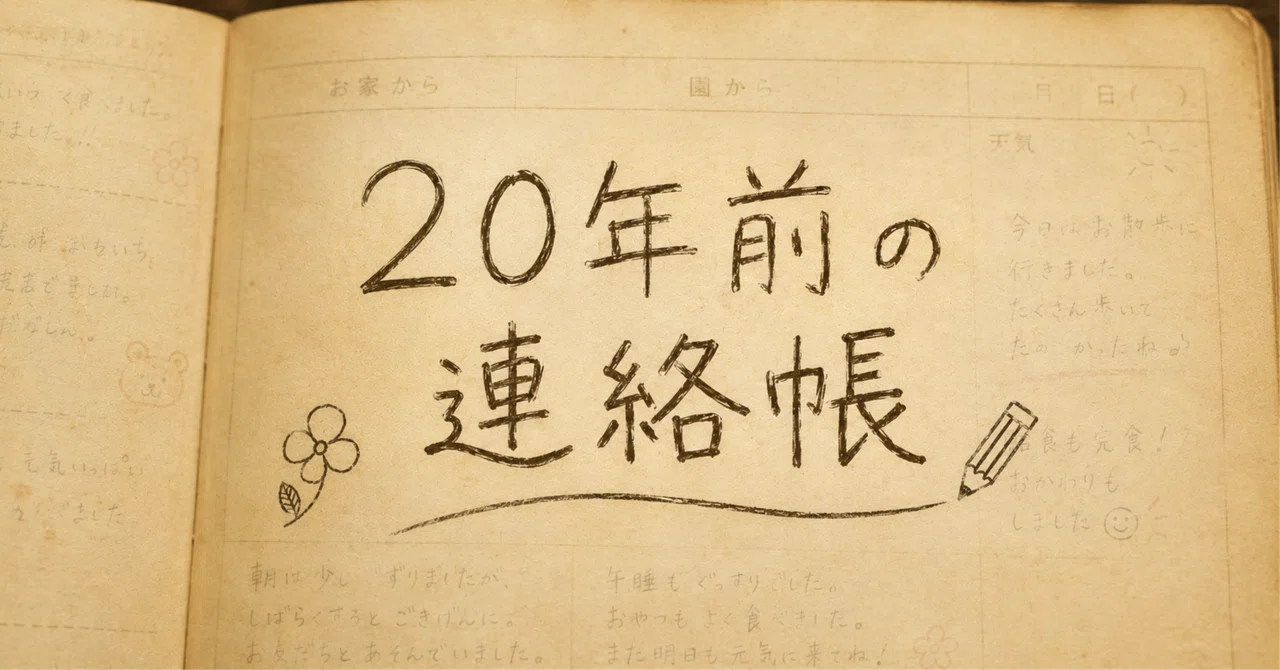 お家から
園から
月 日( )
天気
20年前の
連絡帳
今日はお散歩に
行きました。
たくさん歩いて
たの かったね♪
食も完食!
おかわりも
しました
朝は少し ずりましたが、
しばらくすると ごきげんに。
お友だちと あそんでいました。
午睡も ぐっすりでした。
おやつも よく食べました。
また明日も 元気に来てね!
く食べました。
ました。!!
元気いっぱい